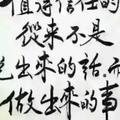 值得信任的
從來不是
出來的話,而
做出來的事